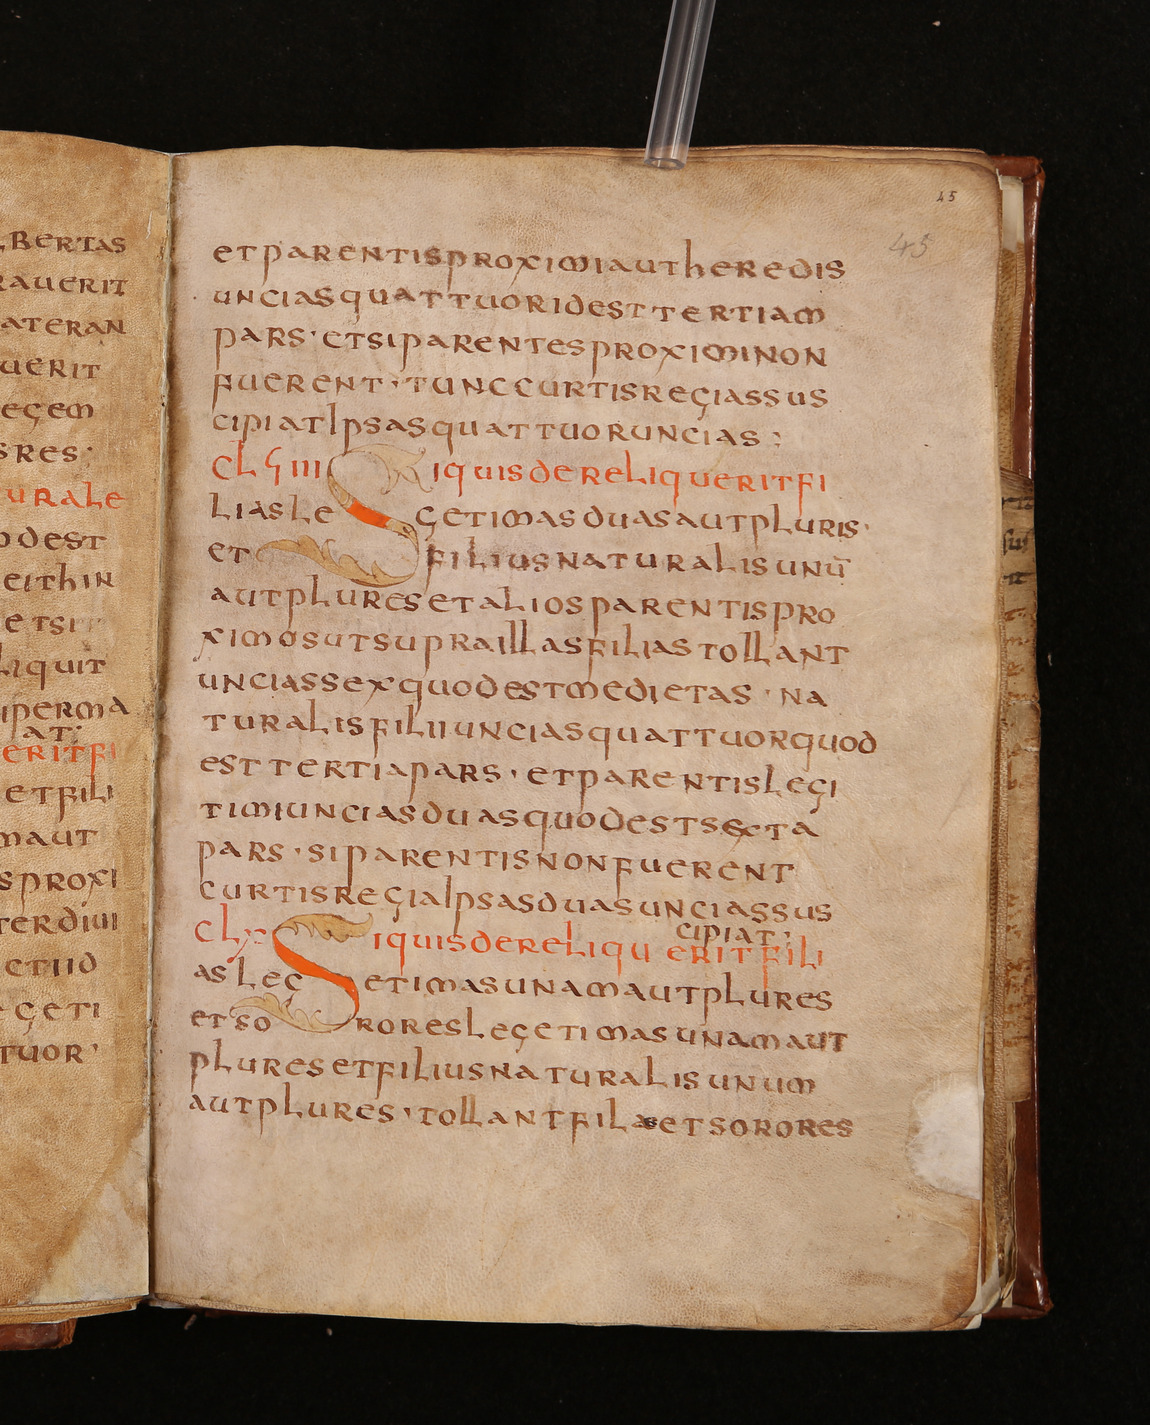 BERTAS
RAUERIT
ATERAN
UERIT
EGEM
SRES
URALE
ODEST
EITHIN
ETSI
LIQUIT
IPERMA
AT
ERITFI
ETFILI
MAUT
SPROXI
TERDIUI
ETIID
GETI
TUOR
45
45
ETPARENTISPROXIMIAUTHEREDIS
UNCIASQUATTUORIDESTTERTIAM
PARS·ETSIPARENTESPROXIMINON
FUERENT·TUNCCURTISREGIASSUS
CIPIATIPSASQUATTUORUNCIAS:
CLVIIII SIQUISDERELIQUERITFI
LIASLEGETIMASDUASAUTPLURIS·
ETFILIUSNATURALISUNŪ
AUTPLURESETALIOSPARENTISPRO
XIMOSUTSUPRAILLASFILIASTOLLANT
UNCIASSEXQUODESTMEDIETAS·NA
TURALISFILIIUNCIASQUATTUORQUOD
ESTTERTIAPARS·ETPARENTISLEGI
TIMIUNCIASDUASQUODESTSEXTA
PARS·SIPARENTISNONFUERENT
CURTISREGIAIPSASDUASUNCIASSUS
CIPIAT:
CLX SIQUISDERELIQUERITFILI
ASLEGETIMASUNAMAUTPLURES
ETSORORESLEGETIMASUNAMAUT
PLURESETFILIUSNATURALISUNUM
AUTPLURES·TOLLANTFILAEETSORORES